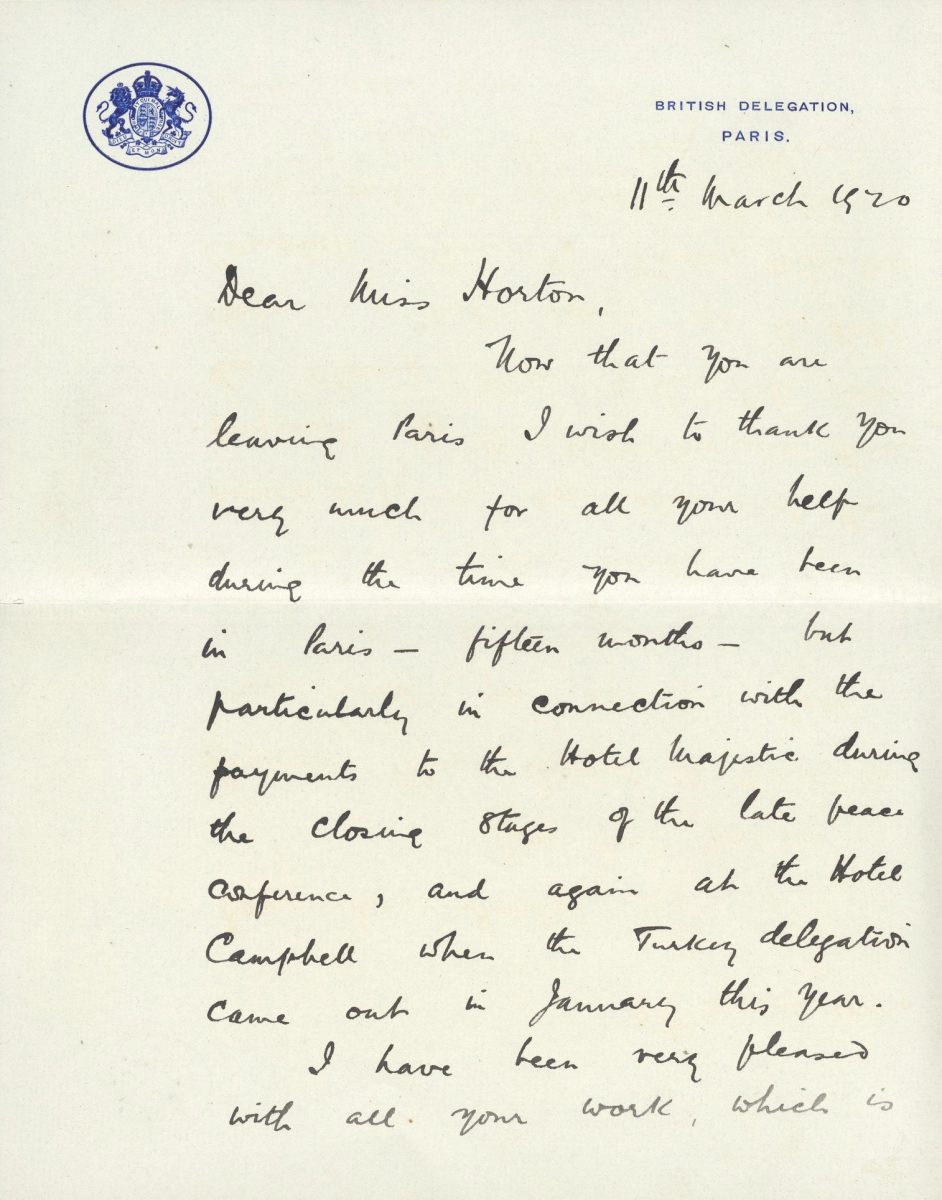 BRITISH DELEGATION,
PARIS.
11th March 1920
Dear Miss Horton,
Now that you are
leaving Paris I wish to thank you
very much for all your help
during the time you have been
in Paris – fifteen months – but
particularly in connection with the
payments to the Hotel Majestic during
the closing stages of the late peace
conference, and again at the Hotel
Campbell when the Turkey delegation
came out in January this year.
I have been very pleased
with all your work, which is